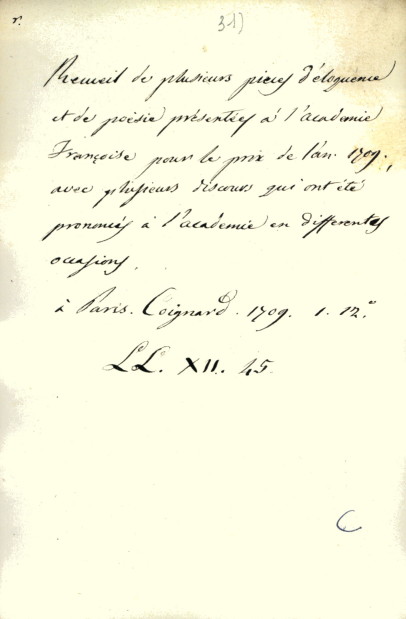 r.
31)
Recueil de plusieurs pieces d'éloquence
et de poësie présentées à l'academie
Françoise pour le prix de l'an. 1709.,
avec plusieurs discours qui ont été
prononcés à l'academie en differentes
occasions.
à Paris. Coignard. 1709. 1. 12.º
LL. XII. 45.
C